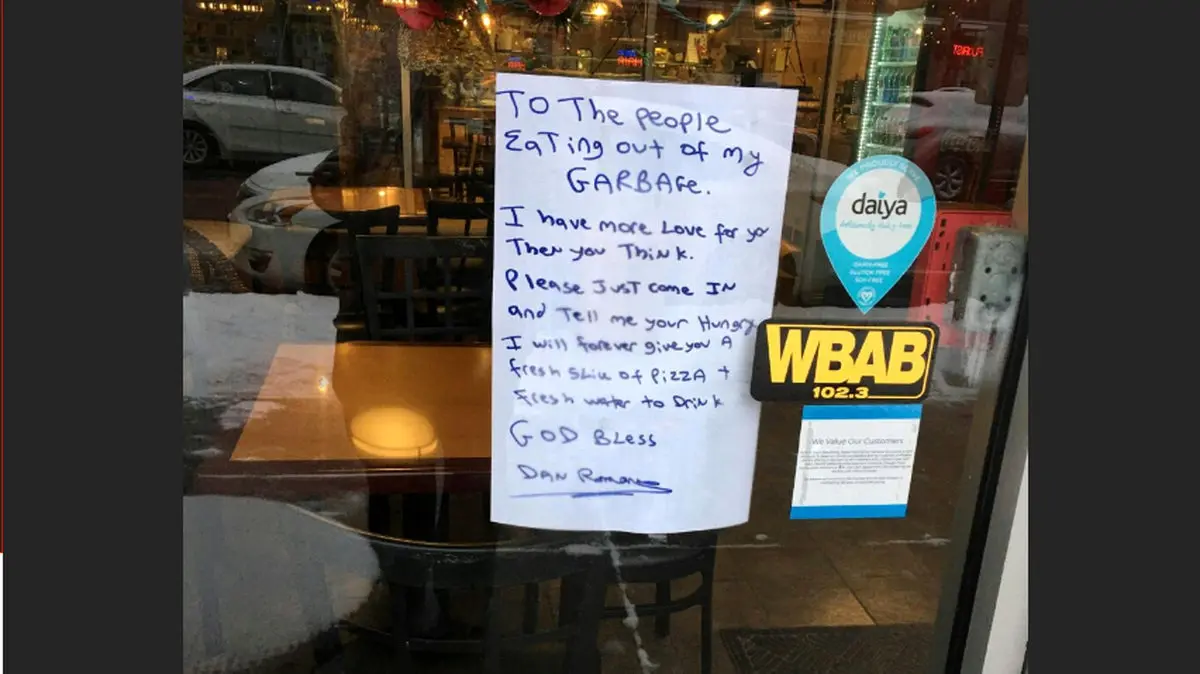 TO The people
EaTing out of my
GARBAGE.
I have more Love for yo
Then you Think.
Please JUST come IN
and Tell me your Hungry
I will forever give you A
fresh Slice of PIZZA +
fresh water to Drink
GOD BLess
DAN Romano
daiya
deliciously dairy-free
DAIRY-FREE
GLUTEN-FREE
SOY-FREE
WBAB
102.3
We Value Our Customers